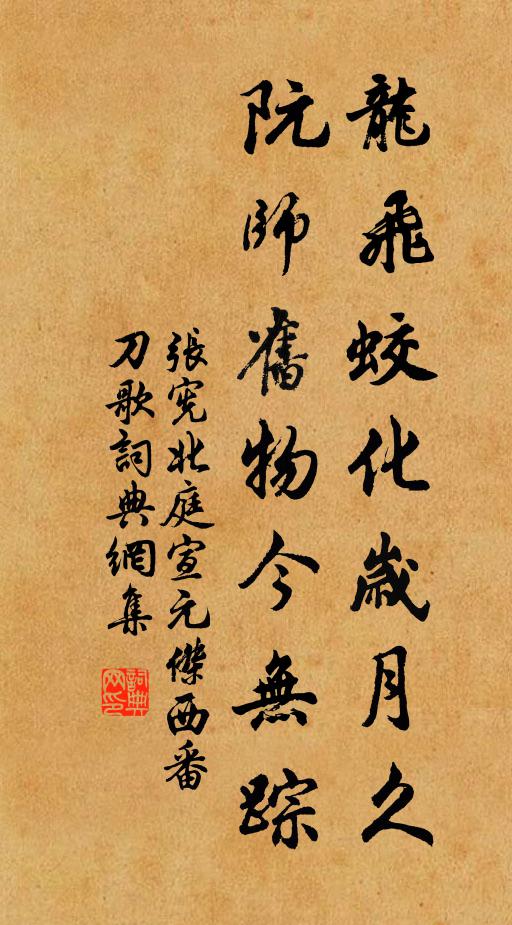 龍飛蛟化歲月久
阮師舊物今無踪
張憲北庭宣元傑西番
刀歌詞典網集
詞典網印